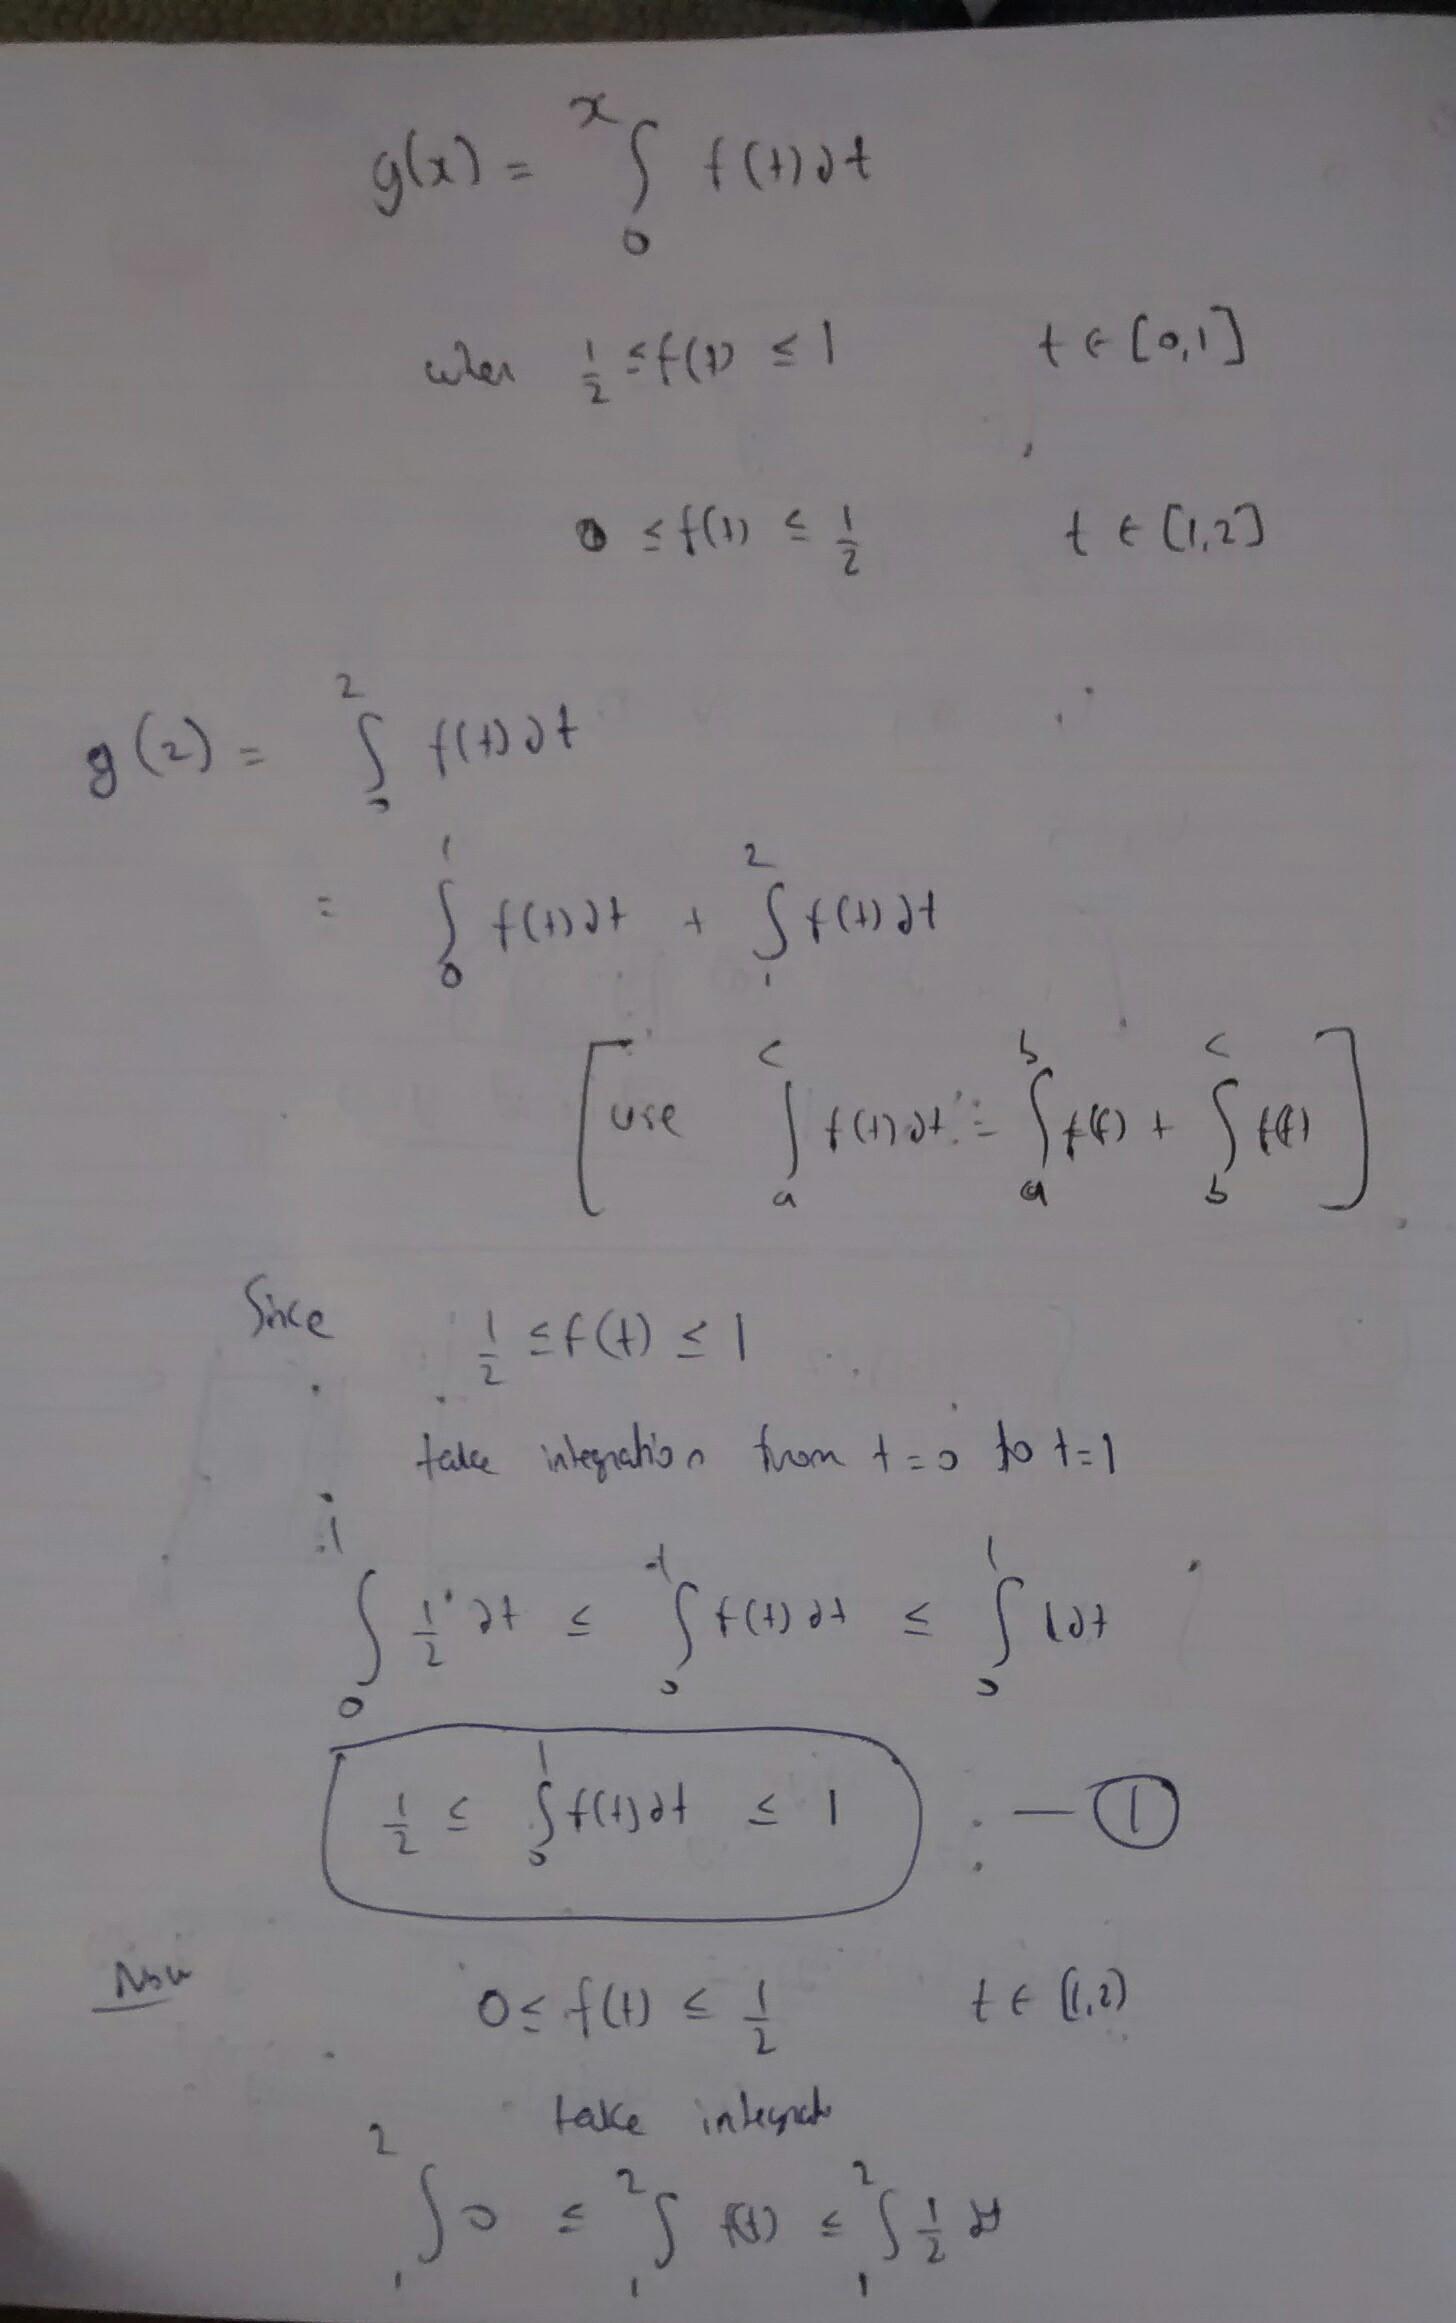 g(x) = ∫₀ˣ f(t)∂t
when 1/2 ≤ f(t) ≤ 1 t ∈ [0,1]
0 ≤ f(t) ≤ 1/2 t ∈ [1,2]
g(2) = ∫₀² f(t)∂t
= ∫₀¹ f(t)∂t + ∫₁² f(t)∂t
[use ∫ₐᶜ f(t)∂t = ∫ₐᵇ f(t) + ∫_b^c f(t)]
Since 1/2 ≤ f(t) ≤ 1
take integration from t=0 to t=1
∫₀¹ 1/2 ∂t ≤ ∫₀¹ f(t)∂t ≤ ∫₀¹ 1∂t
1/2 ≤ ∫₀¹ f(t)∂t ≤ 1 — ①
Now 0 ≤ f(t) ≤ 1/2 t ∈ (1,2)
take
∫₁² 0 ≤ ∫₁² f(t) ≤ ∫₁² 1/2 ∂t